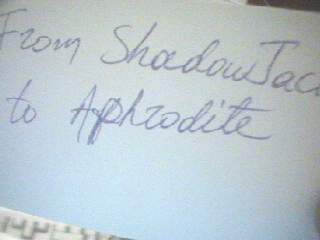 From ShadowJac
to Aphrodite